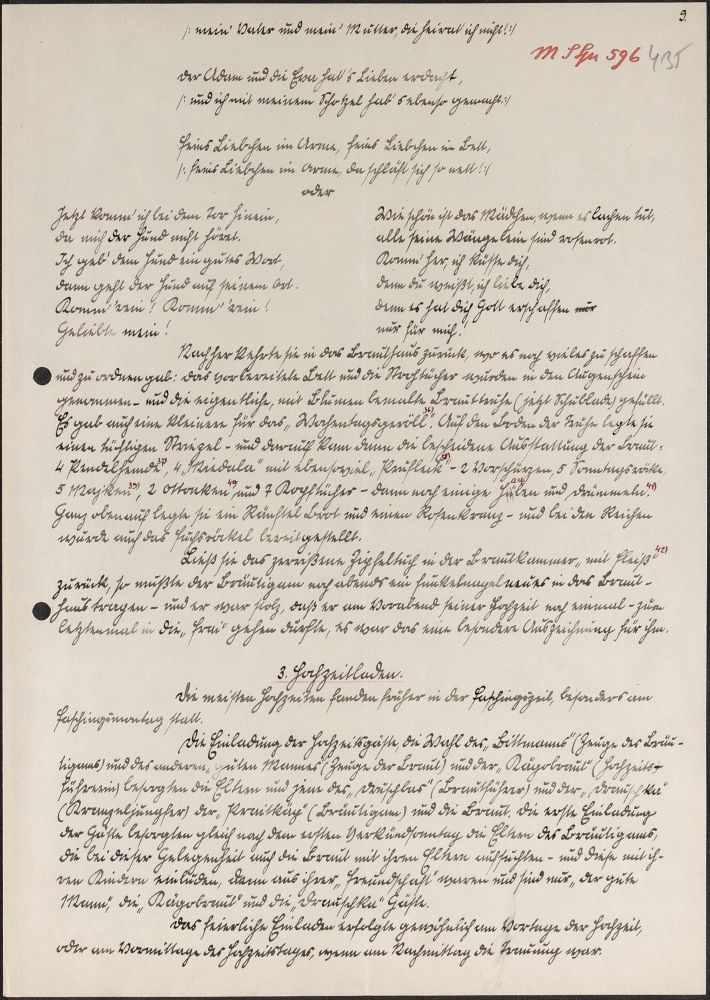 9.
/: mein Vater und mein' Mutter, die heirat' ich nicht! :/
M S Gu 596 435
Der Adam und die Eva hab's Lieben erdacht,
/: und ich mit meinem Schatzel hab's ebenso gemacht :/
Feins Liebchen im Arme, feins Liebchen im Bett,
/: feins Liebchen im Arme, da schläft sich so nett! :/
oder
Jetzt komm' ich bei dem Tor hinein,
da mich der Hund nicht höret.
Ich geb' dem Hund ein gutes Wort,
dann geht der Hund auf seinem Ort.
Komm' 'rein! Komm' 'rein!
Geliebte mein!
Wie schön ist das Mädchen, wenn es lachen tut,
alle seine Wängelein sind rosenrot.
Komm' her, ich küsse dich,
denn du weißt, ich liebe dich,
denn es hat dich Gott erschaffen nur
nur für mich!
Nachher kehrte sie in das Brauthaus zurück, wo es noch vieles zu schaffen
und zu ordnen gab: das vorbereitete Bett und die Strohtücher wurden in den Augenschein
genommen - und die eigentliche, mit Blumen bemalte Brauttruhe (jetzt Schublade) gefüllt.
Es gab auch eine kleinere für das „Wochentagsgeröll“. 36) Auf den Boden der Truhe legte sie
einen tüchtigen Striezel - und darauf kam dann die bescheidene Ausstattung der Braut:
4 Pendelhemde 37), 4 „Miedala“ mit ebensoviel 38) - 2 Vorschürzen, 5 Sonntagsröcke,
5 Majken 39), 2 Ottonken 40) und 7 Kopftücher - dann noch einige und 41)
Ganz obenauf legte sie ein Räuftel Brot und einen Rosenkranz - und bei den Reichen
wurde auch das bereitgestellt.
Ließ sie das zerrissene in der Brautkammer „mit Fleiß“ 42)
zurück, so mußte der Bräutigam noch abends ein funkelnagelneues in das Braut-
haus tragen - und er war stolz, daß er am Vorabend seiner Hochzeit noch einmal - zum
letztenmal in die „Frei“ gehen durfte, es war das eine besondere Auszeichnung für ihn.
3. Hochzeitladen.
Die meisten Hochzeiten fanden früher in der Faschingszeit, besonders am
Faschingsmontag statt.
Die Einladung der Hochzeitsgäste, die Wahl des „Bittmanns“ (Zeuge des Bräu-
tigams) und des anderen „guten Mannes“ (Zeuge der Braut) und der „Kägobraut“ (Hochzeits-
führerin) besorgten die Eltern und jene des „Drüschlas“ (Brautführer) und der „Drauschka“
(Kranzeljungfer) der „Praitkäg“ (Bräutigam) und die Braut. Die erste Einladung
der Gäste besorgten gleich nach dem ersten Verkündsonntag die Eltern des Bräutigams,
die bei dieser Gelegenheit auch die Braut mit ihren Eltern aufsuchten - und diese mit ih-
ren Kindern einluden, denn aus ihrer „Freundschaft“ waren und sind nur „der gute
Mann“, die „Kägobraut“ und die „Drauschka“ Gäste.
Das feierliche Einladen erfolgte gewöhnlich am Vortage der Hochzeit,
oder am Vormittage des Hochzeitstages, wenn am Nachmittag die Trauung war.